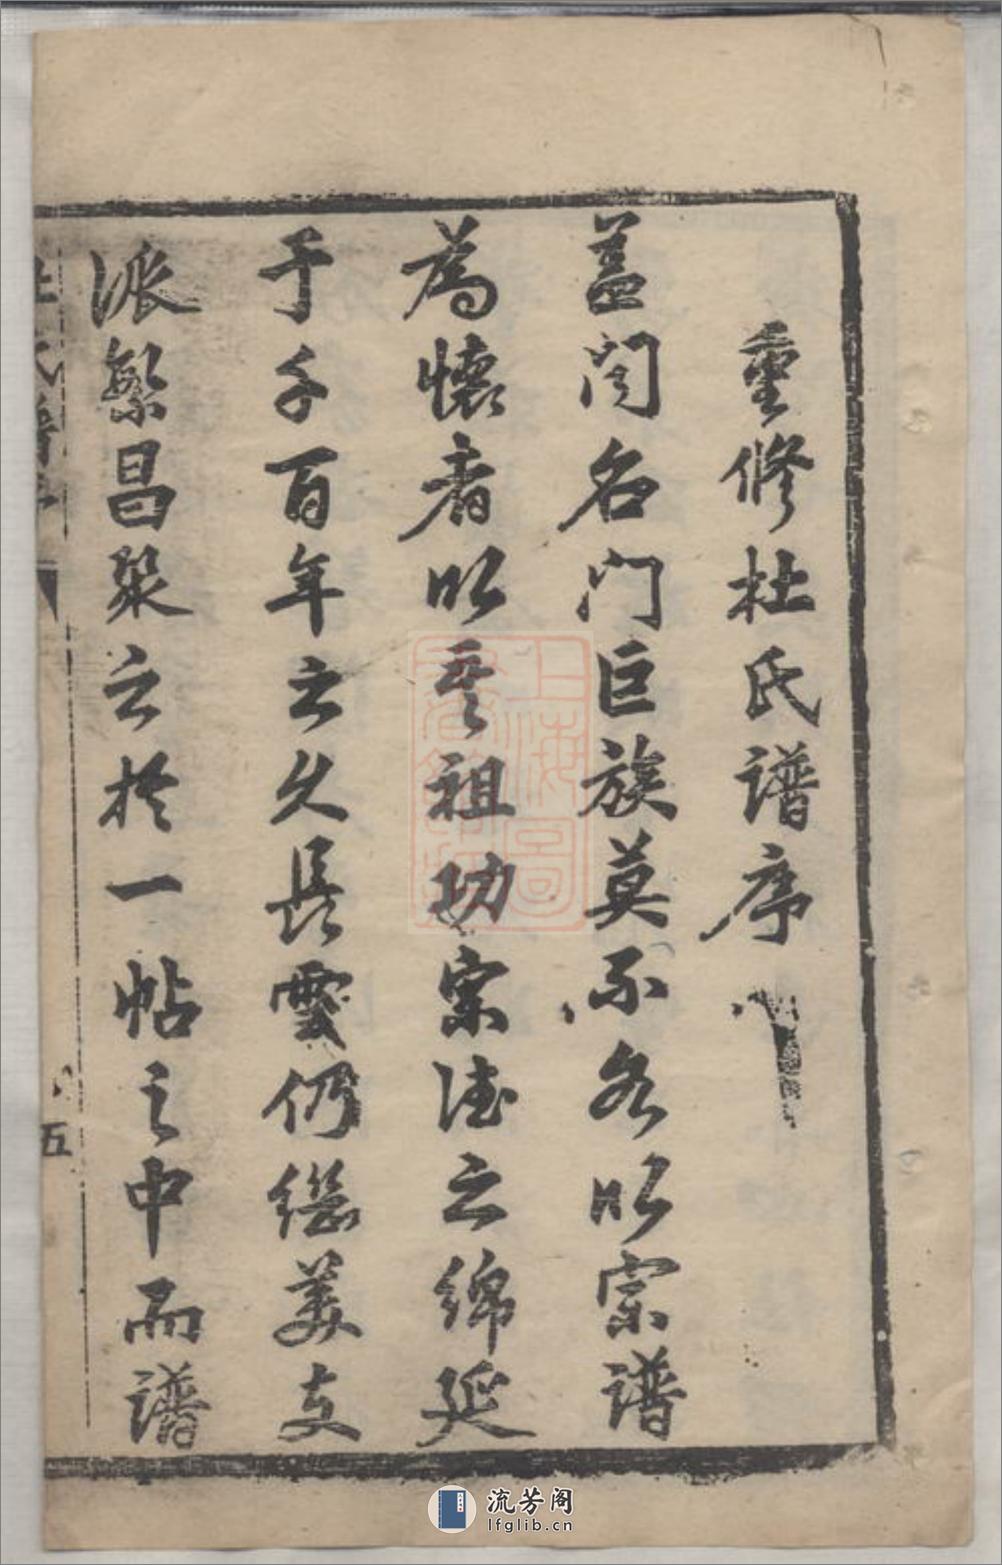 重修杜氏譜序
盖闻名门巨族莫不各以宗譜
為懷者以其祖功宗德之綿延
于千百年之久長雲仍継美支
派繁昌聚之於一帖之中而譜
杜氏譜序
五
上海圖
流芳阁
lfglib.cn